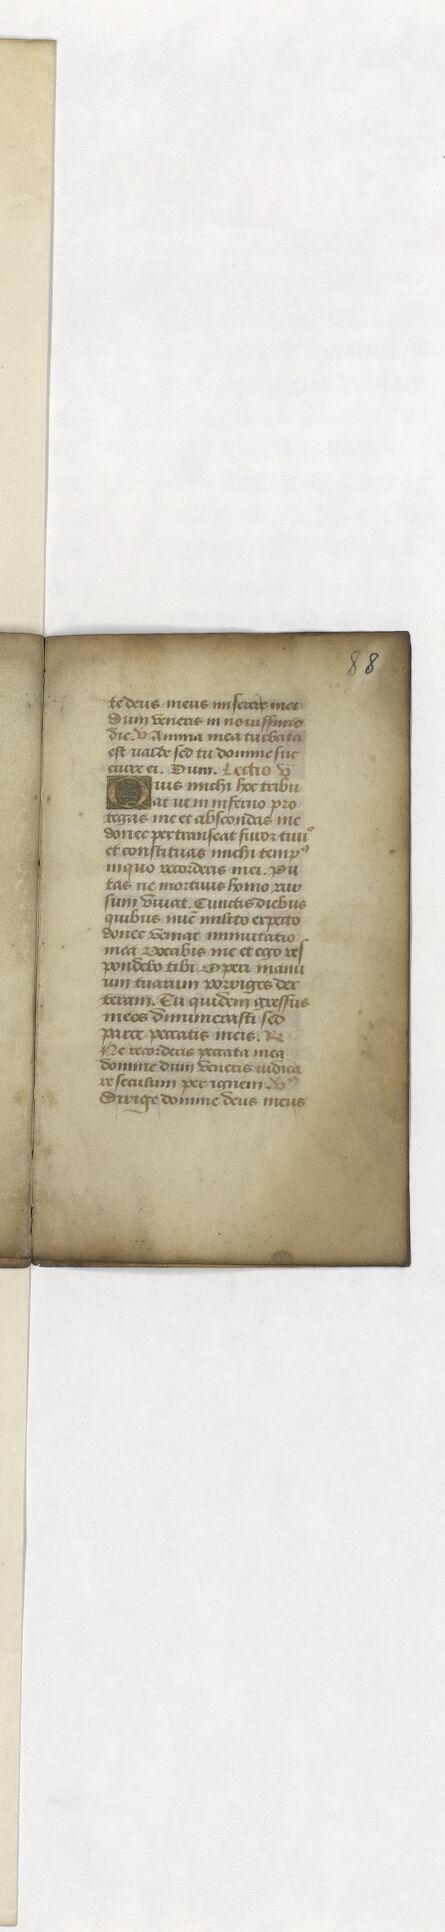 88
te deus meus miserere mei
Dum veneris in novissimo
die. v Anima mea turbata
est valde sed tu domine suc
curre ei. Dum. Lectio v
Quis michi hoc tribu
at ut in inferno pro
tegas me et abscondas me
donec pertranseat furor tuus
et constituas michi temp9
in quo recorderis mei. Pu
tas ne mortuus homo rur
sum vivat. Cunctis diebus
quibus nunc milito expecto
donec veniat immutatio
mea Vocabis me et ego res
pondebo tibi Operi manu
um tuarum porriges dex
teram. Tu quidem gressus
meos dinumerasti sed
parce peccatis meis. R
Ne recorderis peccata mea
domine dum veneris iudica
re seculum per ignem. v9
Dirige domine deus meus